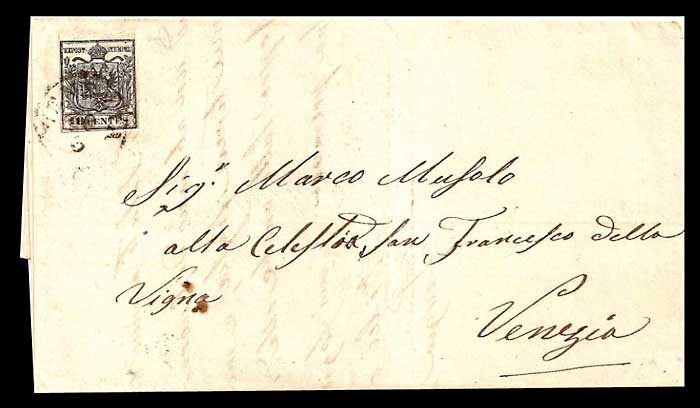 KKKPOST-STEMPEL
10 CENTES
Sig.r Marco Musolo
alla Celestia, San Francesco della
Vigna
Venezia